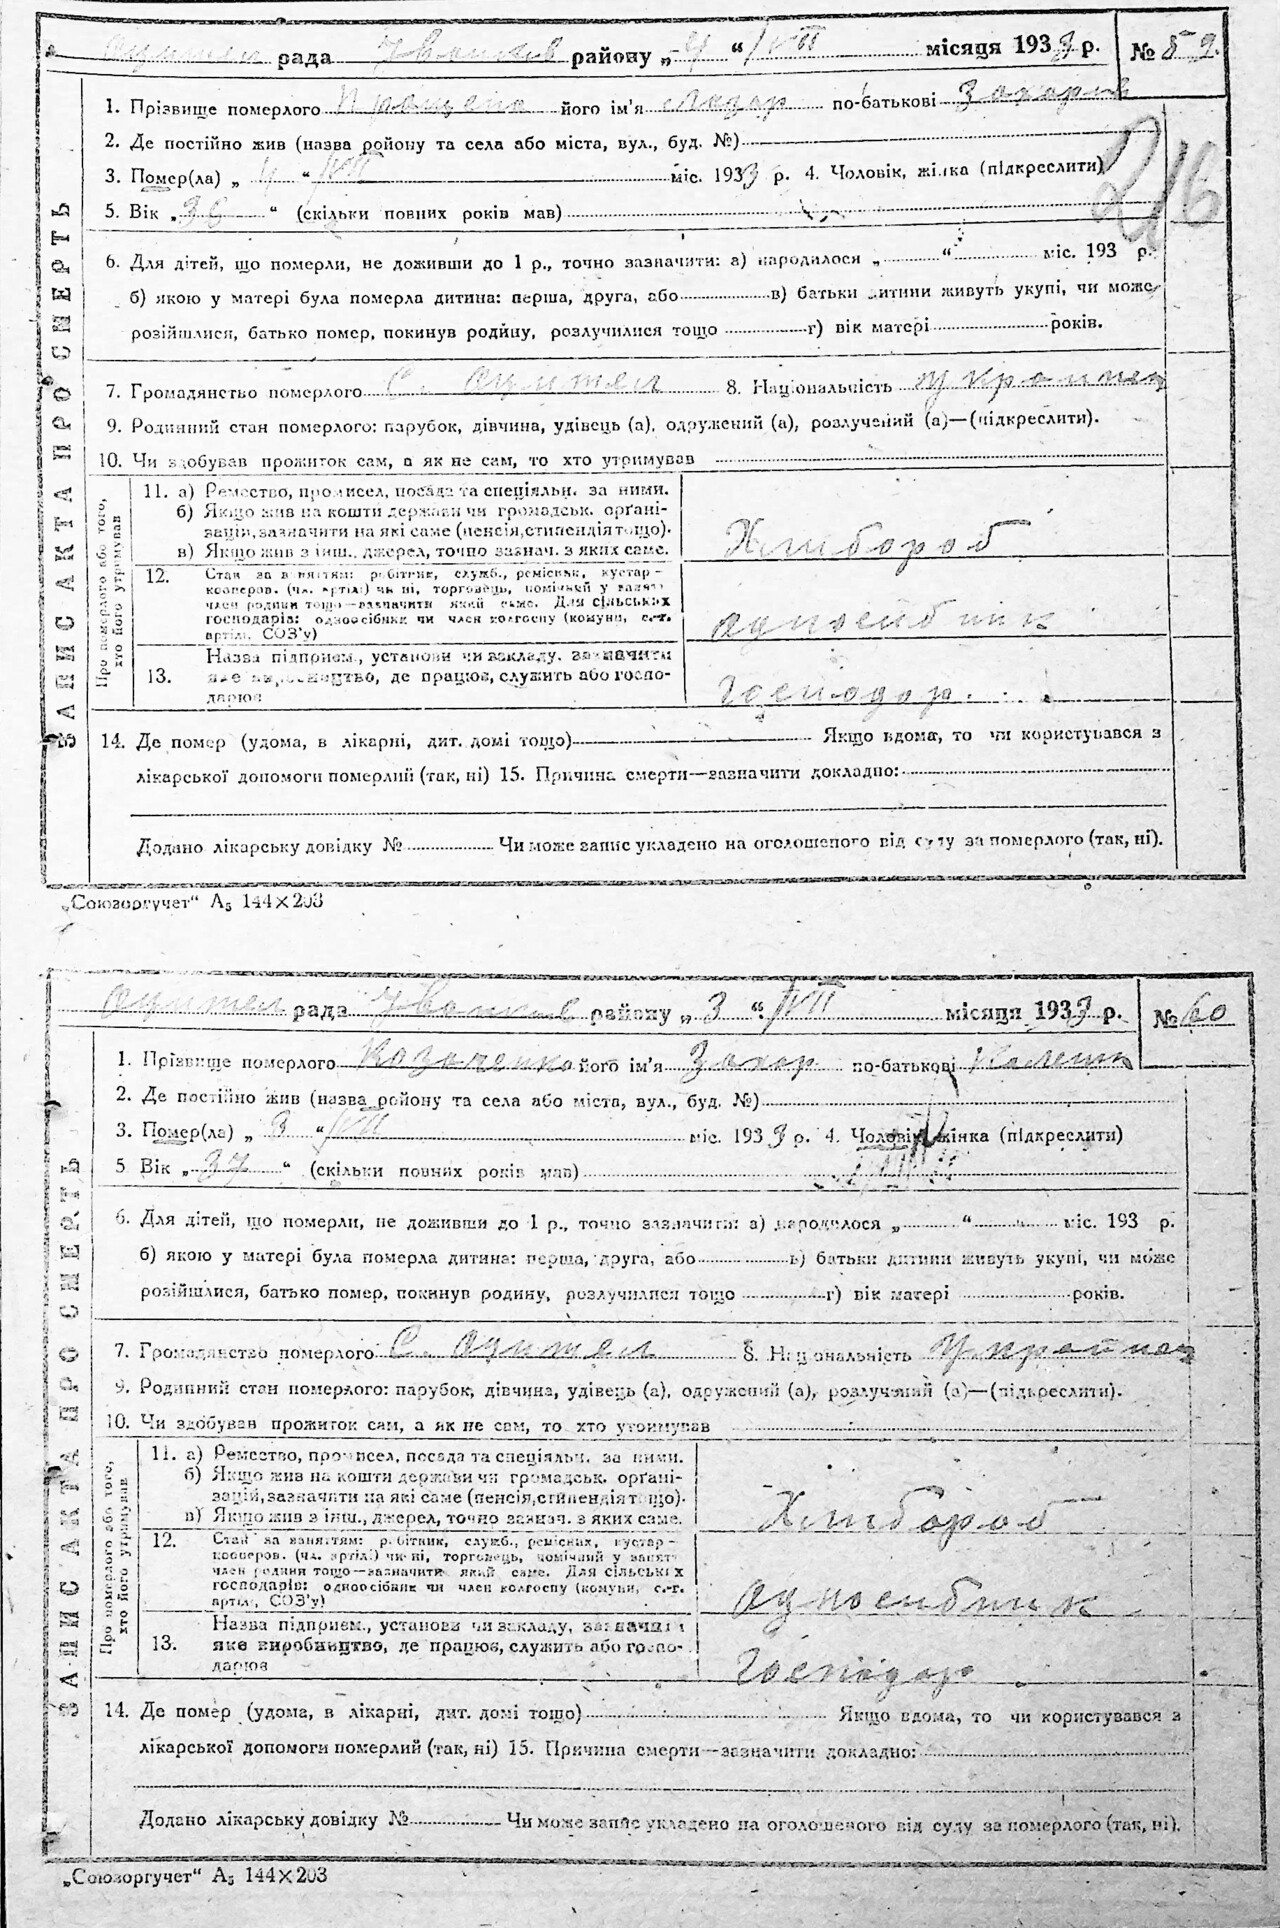 рада район﻿у „ 4 “ VII місяця 1933 р. № 59.
ЗАПИС АКТА ПРО СМЕРТЬ
1. Прізвище померлого його ім'я Лазар по-батькові Захаров
2. Де постійно жив (назва району та села або міста, вул., буд. №)
3. Помер(ла) „ 4 “ VII міс. 1933 р. 4. Чоловік, жінка (підкреслити)
216
5. Вік „ “ (скільки повних років мав)
6. Для дітей, що померли, не доживши до 1 р., точно зазначити: а) народилося „ “ міс. 193 р.
б) якою у матері була померла дитина: перша, друга, або в) батьки дитини живуть укупі, чи може
розійшлися, батько помер, покинув родину, розлучилися тощо г) вік матері років.
7. Громадянство померлого С. 8. Національність Українец
9. Родинний стан померлого: парубок, дівчина, удівець (а), одружений (а), розлучений (а)—(підкреслити).
10. Чи здобував прожиток сам, а як не сам, то хто утримував
Про померлого або того,
хто його утримував
11. а) Ремество, промисел, посада та спеціяльн. за ними.
б) Якщо жив на кошти держави чи громадськ. орґані-
зацій, зазначити на які саме (пенсія, стипендія тощо).
в) Якщо жив з інш. джерел, точно зазнач. з яких саме.
Хлибороб
12. Стан за заняттям: робітник, служб., ремісник, кустар-
кооперов. (чл. артілі) чи ні, торговець, помічний у занятт.
член родини тощо—зазначити який саме. Для сільських
господарів: одноосібник чи член колгоспу (комуни, с.-г.
артілі, СОЗ'у)
односибник
13. Назва підприєм., установи чи закладу, зазначити
яке виробництво, де працює, служить або госпо-
дарює
Господар.
14. Де помер (удома, в лікарні, дит. домі тощо) Якщо вдома, то чи користувався з
лікарської допомоги померлий (так, ні) 15. Причина смерти—зазначити докладно:
Додано лікарську довідку № Чи може запис укладено на оголошеного від суду за померлого (так, ні).
„Союзоргучет“ А₅ 144×203
рада району „ 3 “ VII місяця 1933 р. № 60
ЗАПИС АКТА ПРО СМЕРТЬ
1. Прізвище померлого Козаченко його ім'я Захар по-батькові
2. Де постійно жив (назва району та села або міста, вул., буд. №)
3. Помер(ла) „ 3 “ VII міс. 1933 р. 4. Чоловік, жінка (підкреслити)
5 Вік „ 37 “ (скільки повних років мав)
6. Для дітей, що померли, не доживши до 1 р., точно зазначити: а) народилося „ “ міс. 193 р.
б) якою у матері була померла дитина: перша, друга, або в) батьки дитини живуть укупі, чи може
розійшлися, батько помер, покинув родину, розлучилися тощо г) вік матері років.
7. Громадянство померлого С. 8. Національність Українец
9. Родинний стан померлого: парубок, дівчина, удівець (а), одружений (а), розлучений (а)—(підкреслити).
10. Чи здобував прожиток сам, а як не сам, то хто утримував
Про померлого або того,
хто його утримував
11. а) Ремество, промисел, посада та спеціяльн. за ними.
б) Якщо жив на кошти держави чи громадськ. орґані-
зацій, зазначити на які саме (пенсія, стипендія тощо).
в) Якщо жив з інш. джерел, точно зазнач. з яких саме.
Хлибороб
12. Стан за заняттям: робітник, служб., ремісник, кустар-
кооперов. (чл. артілі) чи ні, торговець, помічний у занятт.
член родини тощо—зазначити який саме. Для сільських
господарів: одноосібник чи член колгоспу (комуни, с.-г.
артілі, СОЗ'у)
односибник
13. Назва підприєм., установи чи закладу, зазначити
яке виробництво, де працює, служить або госпо-
дарює
Господар
14. Де помер (удома, в лікарні, дит. домі тощо) Якщо вдома, то чи користувався з
лікарської допомоги померлий (так, ні) 15. Причина смерти—зазначити докладно:
Додано лікарську довідку № Чи може запис укладено на оголошеного від суду за померлого (так, ні).
„Союзоргучет“ А₅ 144×203